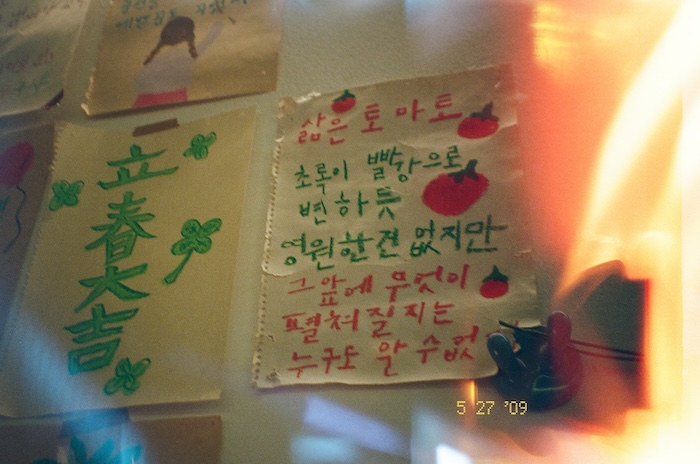 立春大吉
삶은 토마토
초록이 빨강으로
변하듯
영원한건 없지만
그 앞에 무엇이
펼쳐질지는
누구도 알 수 없
5 27 '09